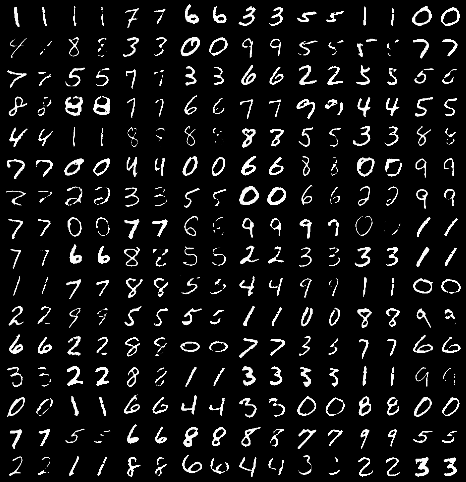 1 1 1 1 7 7 6 6 3 3 5 5 1 1 0 0
4 8 8 3 3 0 0 9 9 5 5 5 7 7
7 7 5 5 7 7 3 3 6 6 2 2 5 5 5 5
8 8 8 8 7 7 6 6 7 7 9 9 4 4 5 5
4 4 1 1 8 8 8 8 8 8 5 5 3 3 8 8
7 7 0 0 4 4 0 0 6 6 8 8 0 0 9 9
2 2 2 2 3 3 5 5 0 0 6 6 2 2 9 9
7 7 0 0 7 7 6 6 9 9 9 9 0 1 1
7 7 6 6 8 8 5 5 2 2 3 3 3 3 1 1
1 1 7 7 8 8 5 5 4 4 9 9 1 1 0 0
2 2 9 9 5 5 5 5 1 1 0 0 8 8 9 9
6 6 2 2 8 8 0 0 7 7 3 3 7 7 6 6
3 3 2 2 8 8 1 1 3 3 3 3 1 1 9 9
0 0 1 1 6 6 4 4 3 3 0 0 8 8 0 0
7 7 5 5 6 6 8 8 8 8 7 7 9 9 5 5
2 2 1 1 8 8 6 6 4 4 3 3 2 2 3 3